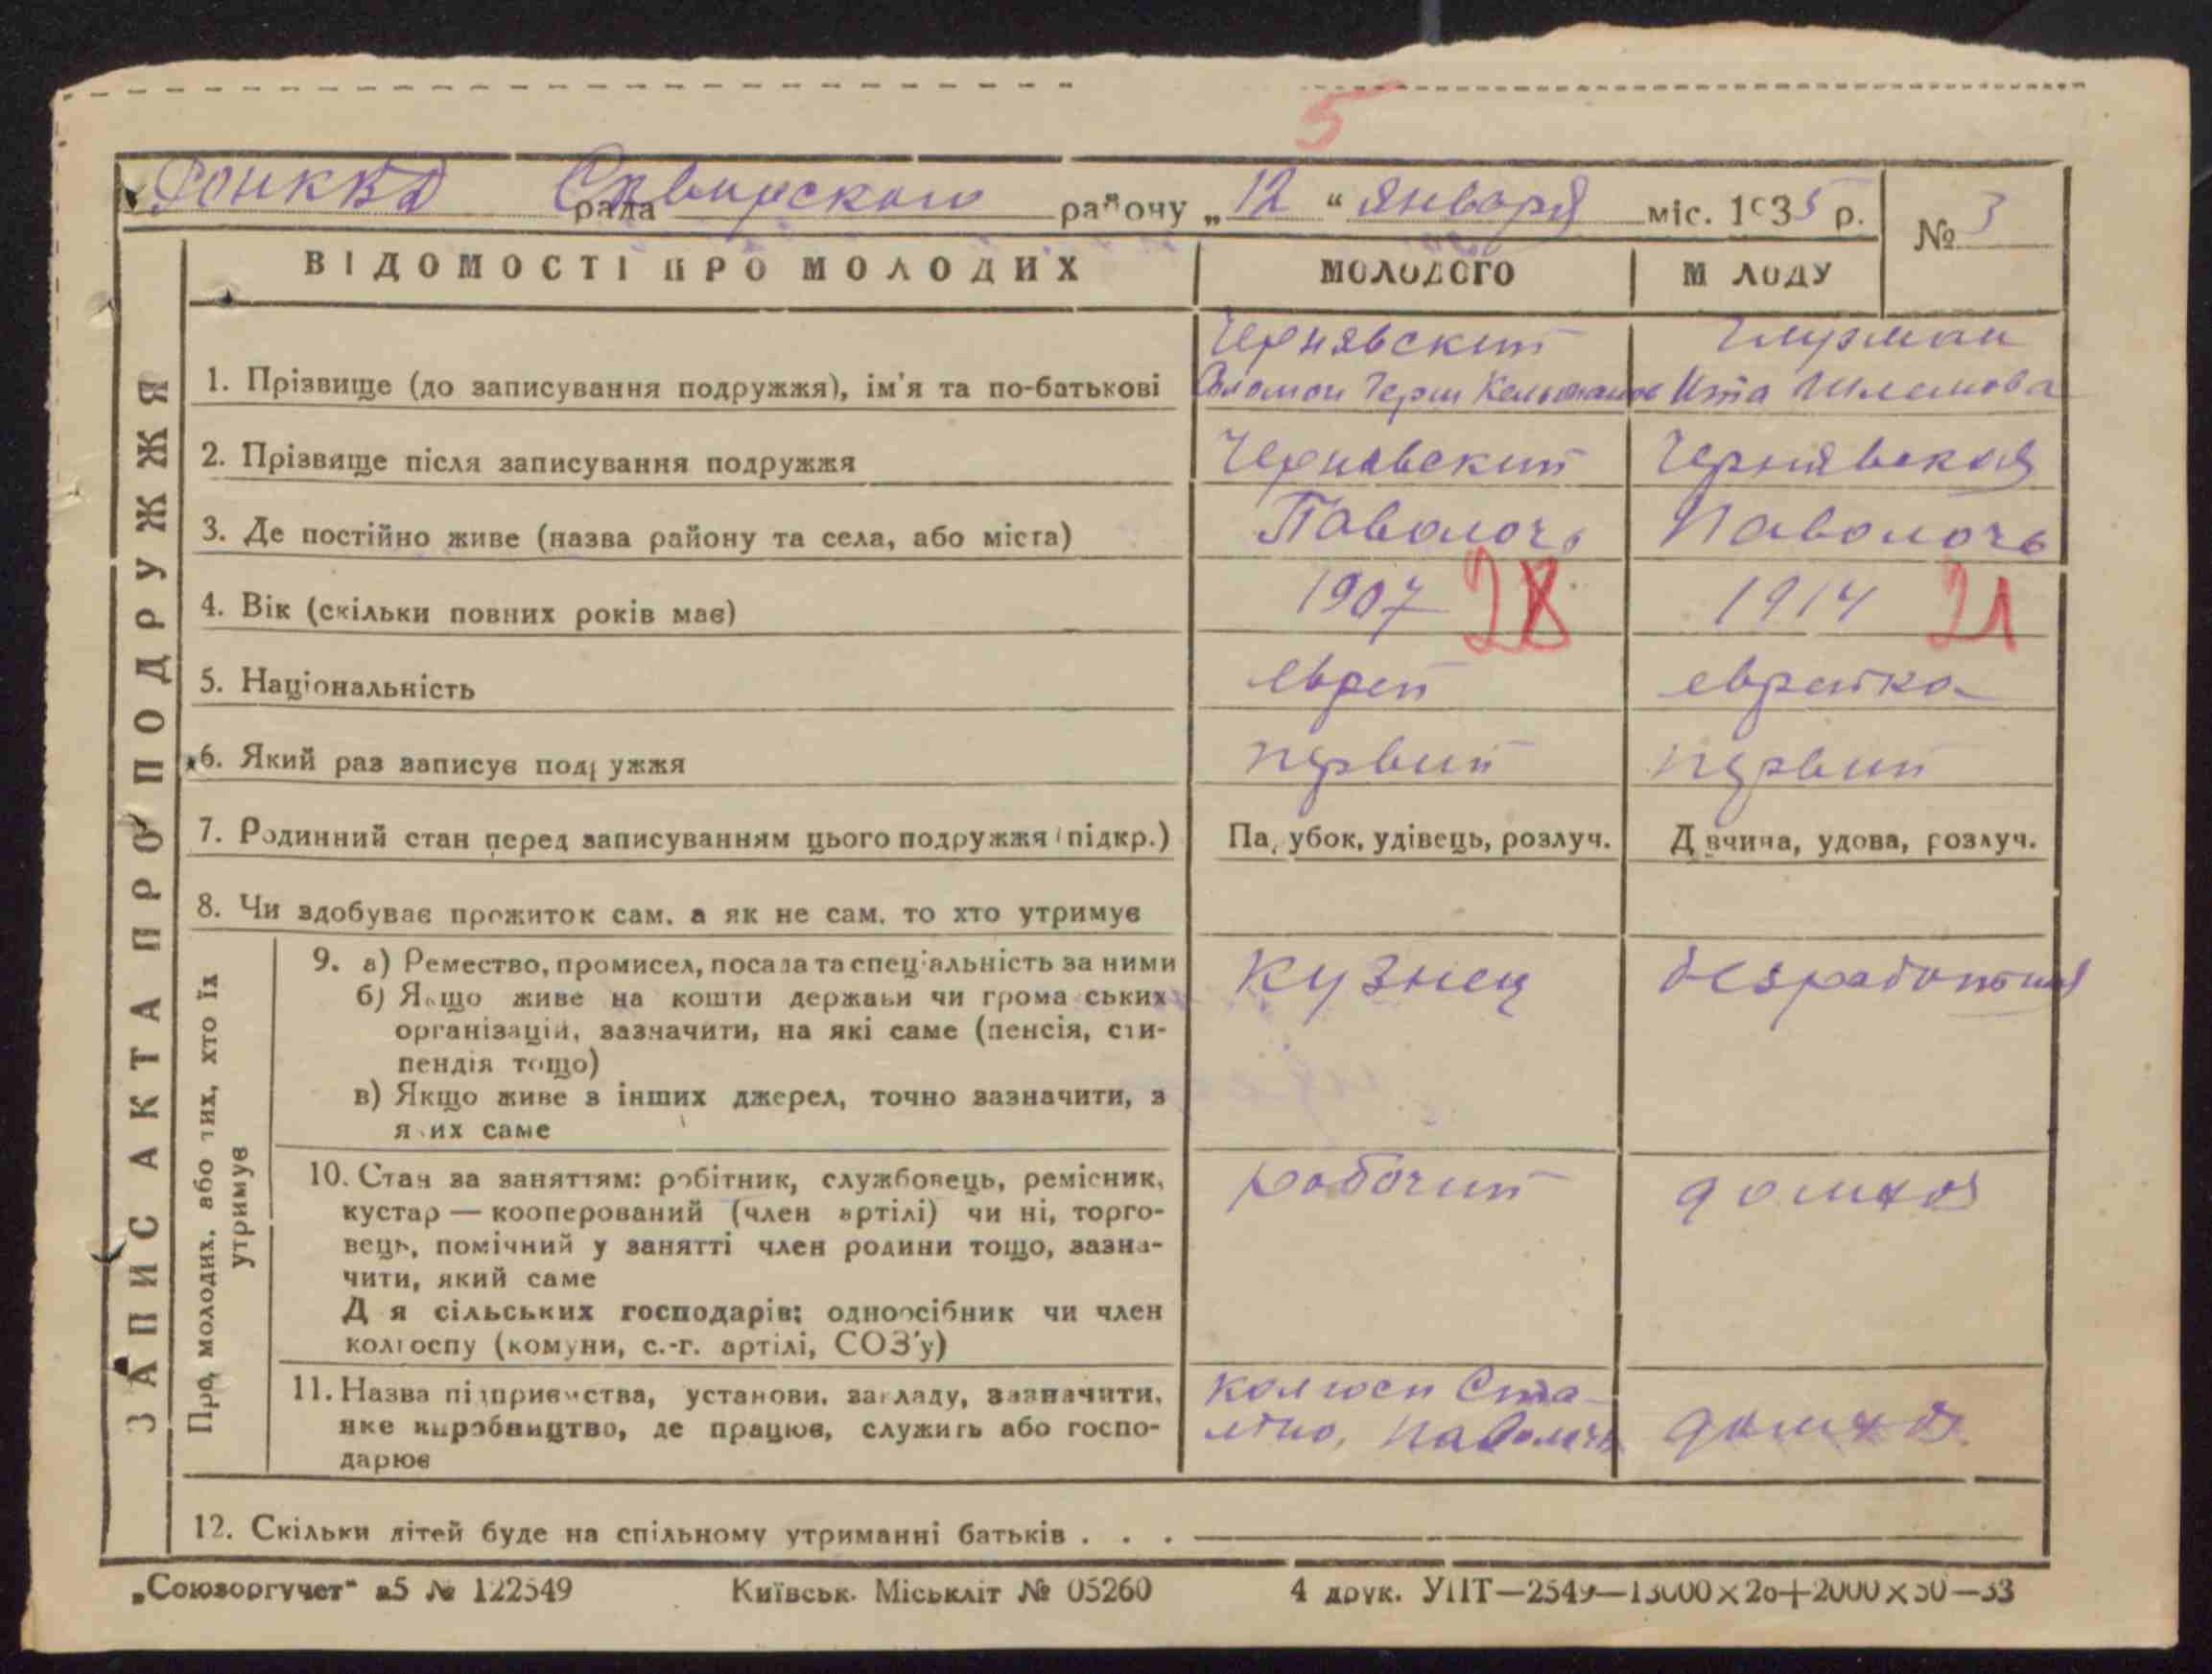 5
Сквирского
рада району „12“ января міс. 1935 р.
№ 3
ВІДОМОСТІ ПРО МОЛОДИХ МОЛОДОГО М ЛОДУ
ЗАПИС АКТА ПРО ПОДРУЖЖЯ
Чернявский
1. Прізвище (до записування подружжя), ім'я та по-батькові Соломон Герш Ита Шлемова
2. Прізвище після записування подружжя Чернявский Чернявская
3. Де постійно живе (назва району та села, або міста) Паволочь Паволочь
4. Вік (скільки повних років має) 1907 28 1914 21
5. Національність еврей еврейка
6. Який раз записує под ужжя первый первый
7. Родинний стан перед записуванням цього подружжя (підкр.) Па убок, удівець, розлуч. Д вчина, удова, розлуч.
8. Чи здобуває прожиток сам, а як не сам, то хто утримує
Про молодих, або тих, хто їх
утримує
9. а) Ремество, промисел, посада та спеціальність за ними кузнец безработная
б) Якщо живе на кошти держави чи грома ських
організацій, зазначити, на які саме (пенсія, сти-
пендія тощо)
в) Якщо живе з інших джерел, точно зазначити, з
яких саме
10. Стан за заняттям: робітник, службовець, ремісник, рабочий домхоз
кустар — кооперований (член артілі) чи ні, торго-
вець, помічний у занятті член родини тощо, зазна-
чити, який саме
Д я сільських господарів: одноосібник чи член
колгоспу (комуни, с.-г. артілі, СОЗ'у)
11. Назва підприємства, установи, закладу, зазначити, колгосп Ста-
яке виробництво, де працює, служить або госпо- Паволочь домхоз
дарює
12. Скільки дітей буде на спільному утриманні батьків . . .
„Союзоргучет“ в5 № 122549 Київськ. Міськліт № 05260 4 друк. УПТ—2549—13000×20+2000×50—33